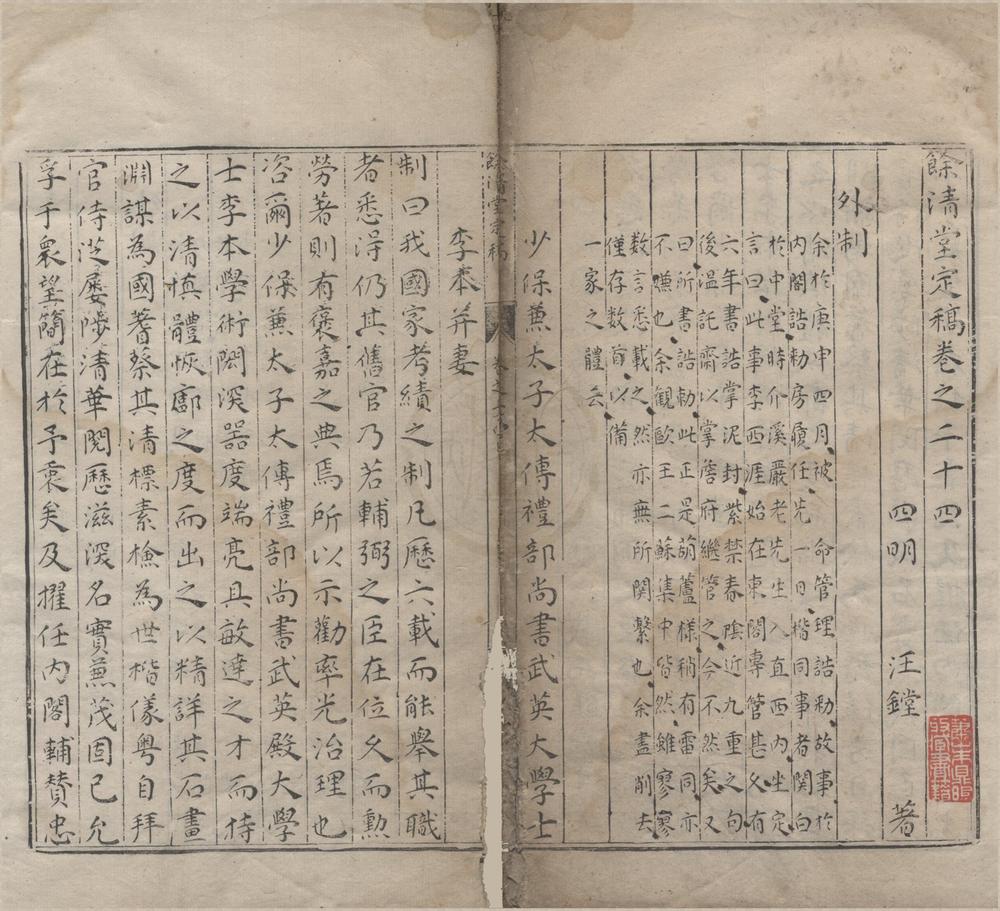 餘清堂定稿卷之二十四
四明 汪鏜 著
外制
余於庚申四月被 命管理誥勑故事於
內閣誥勑房履任先一日偕同事者關白
於中堂時介溪嚴老先生入直西內坐定
言曰此事李西涯始在東閣專管甚久有
六年書誥掌泥封紫禁春陰近九重之句
後溫託齋以掌詹府繼管之今不然矣又
曰所書誥勑此正是葫蘆樣稍有雷同亦
不嫌也余觀歐王二蘇集中皆然雖寥寥
數言悉載之然亦無所關繫也余盡削去
僅存數首以備
一家之體云
少保兼太子太傅禮部尚書武英大學士
李本并妻
制曰我國家考績之制凡歷六載而能舉其職
者悉得仍其舊官乃若輔弼之臣在位久而勳
勞著則有褒嘉之典焉所以示勸率光治理也
咨爾少保兼太子太傅禮部尚書武英殿大學
士李本學術閎深器度端亮具敏達之才而持
之以清慎體恢廓之度而出之以精詳其石畫
淵謀為國蓍蔡其清標素檢為世楷儀粵自拜
官侍從屢陟清華閱歷滋深名實兼茂固已允
孚于衆望簡在於予衷矣及擢任內閣輔贊忠
餘清堂定稿